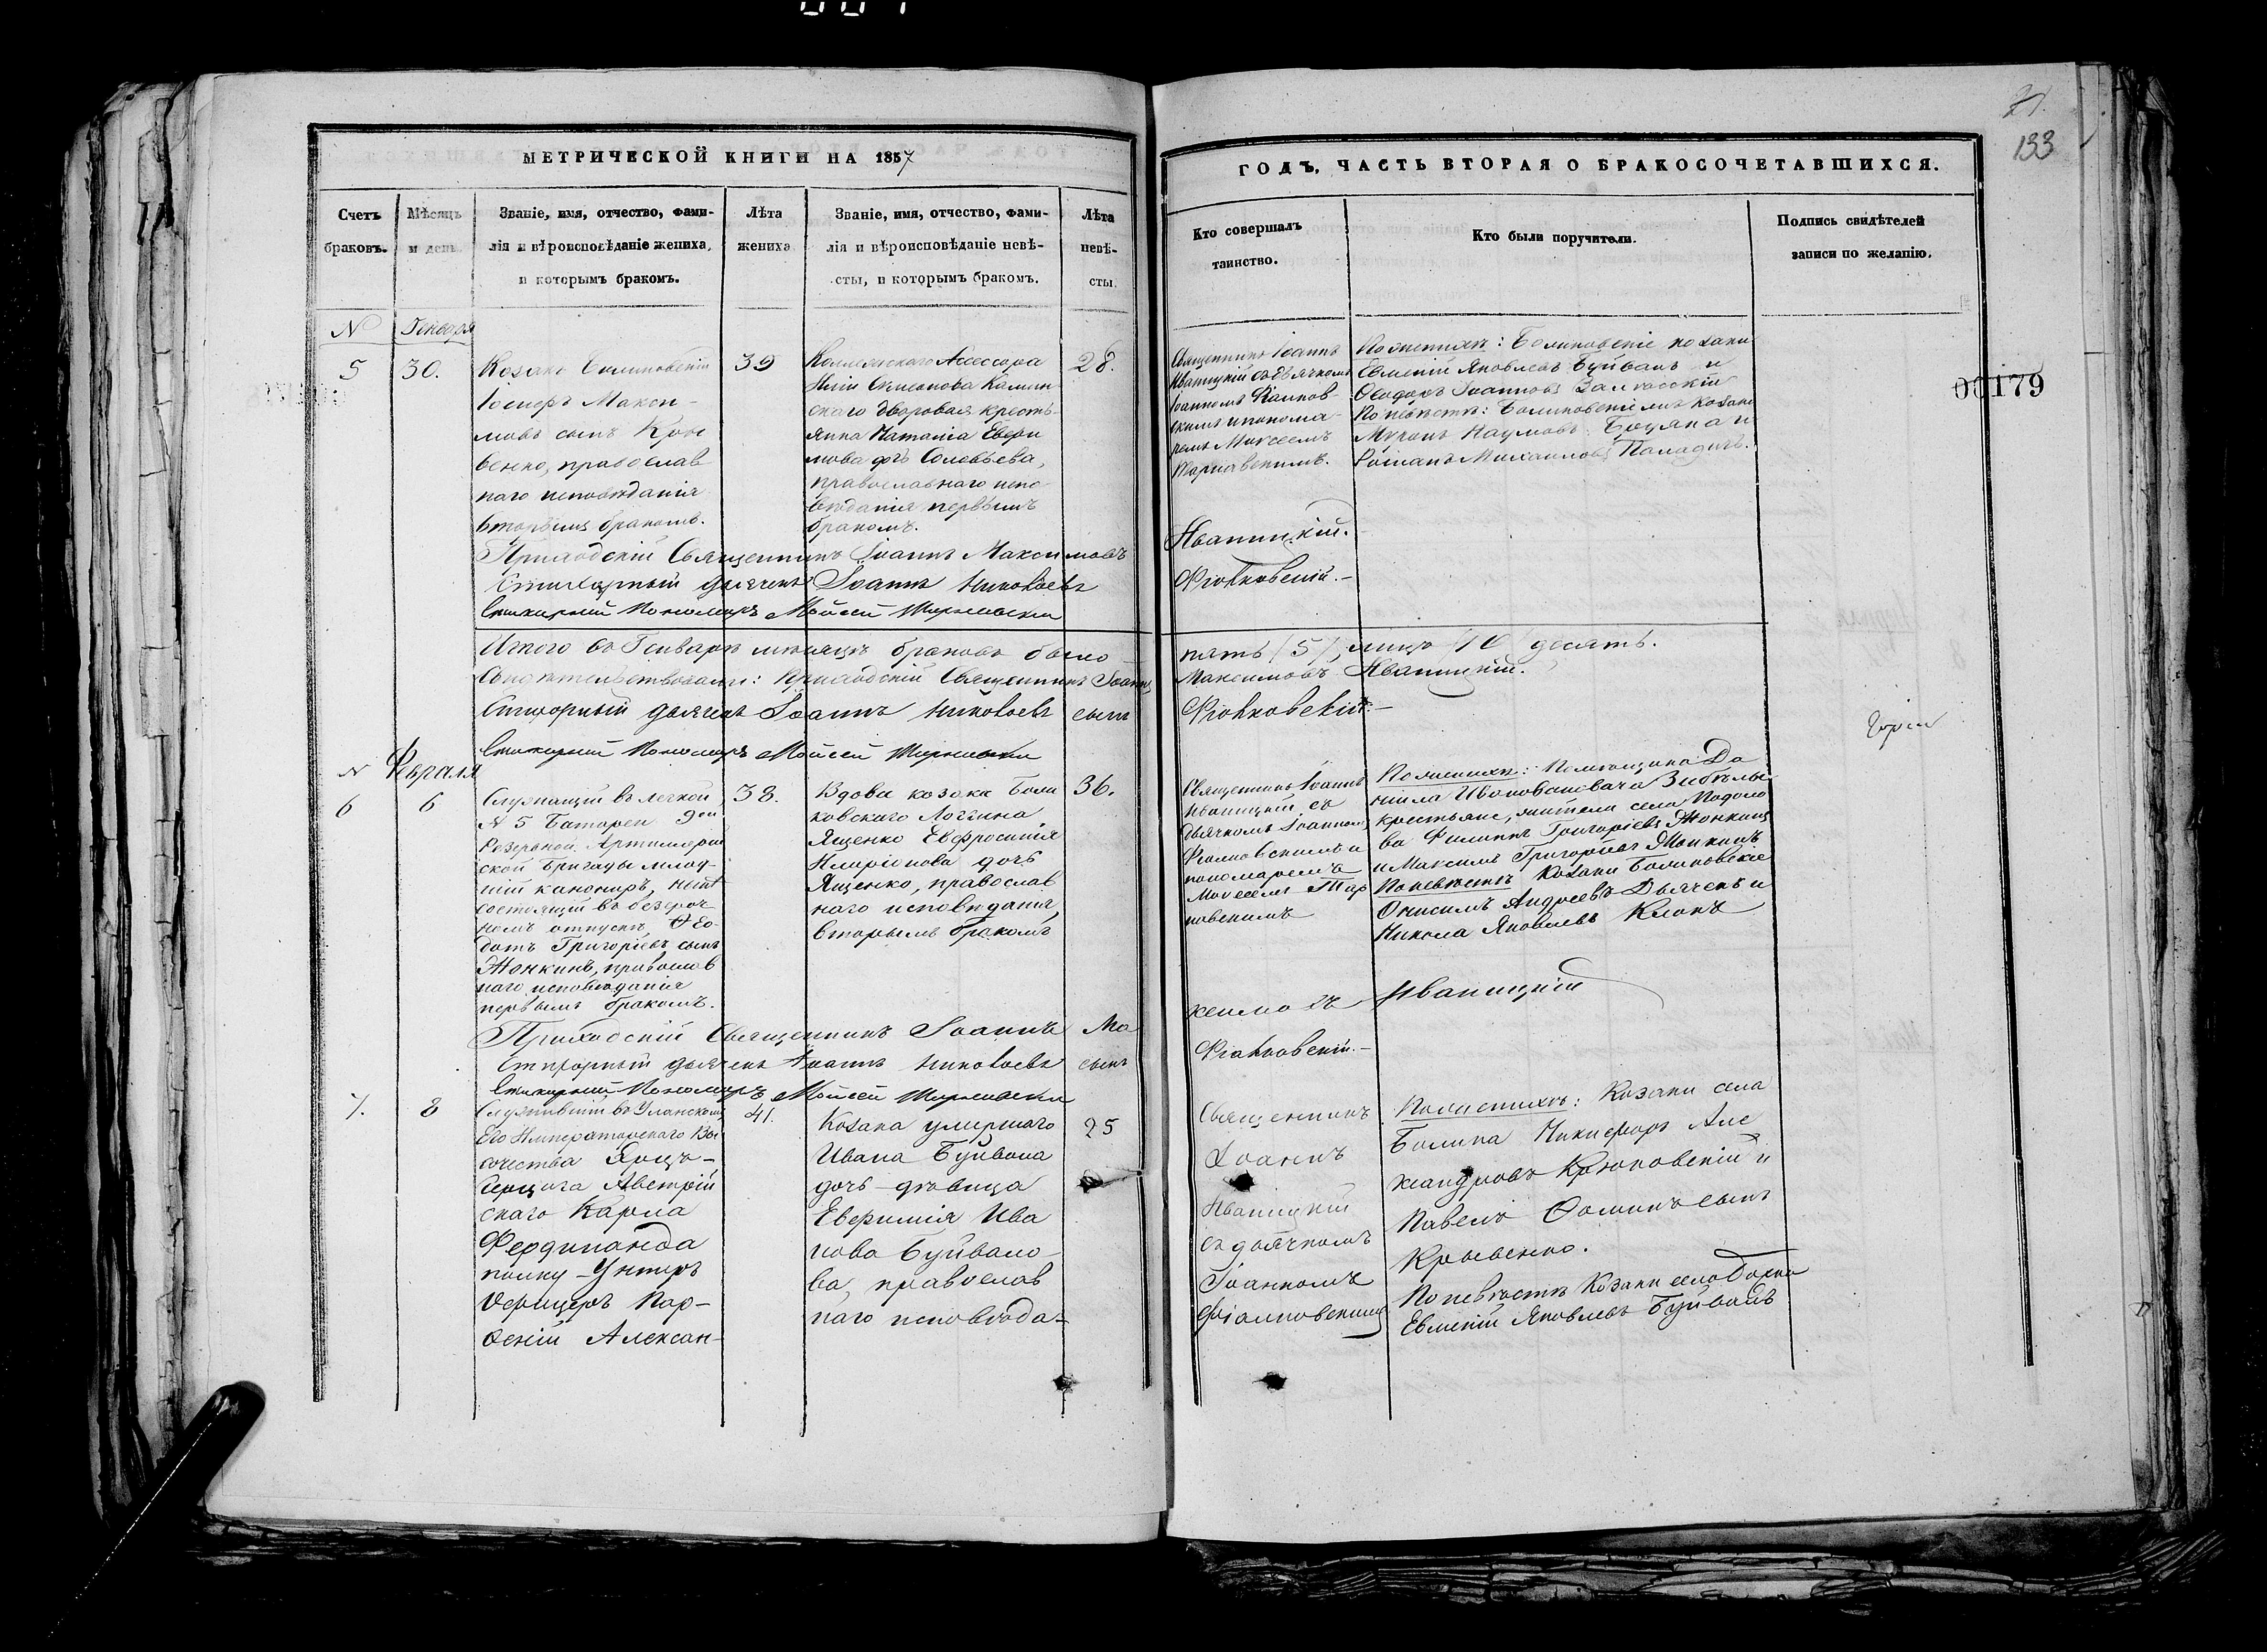 21.
133
МЕТРИЧЕСКОЙ КНИГИ НА 1857
ГОДЪ, ЧАСТЬ ВТОРАЯ О БРАКОСОЧЕТАВШИХСЯ.
Счетъ
браковъ.
Мѣсяцъ
и день
Званіе, имя, отчество, фами-
лія и вѣроисповѣданіе жениха,
и которымъ бракомъ.
Лѣта
жениха
Званіе, имя, отчество, фами-
лія и вѣроисповѣданіе невѣ-
сты, и которымъ бракомъ.
Лѣта
невѣ-
сты.
Кто совершалъ
таинство.
Кто были поручители.
Подпись свидѣтелей
записи по желанію.
00179
N
Генваря
5
30.
Козакъ
Іосифъ Макси-
мовъ сынъ Кри
венко, православ
наго исповѣданія
вторымъ бракомъ.
39
Коллежскаго Ассессора
скаго дворовая кресть-
янка Наталія Евфи
мова дочь Соловьева,
православнаго испо-
вѣданія первымъ
бракомъ.
28.
Священникъ Іоаннъ
Иваницкій съ дьячкомъ
По женихѣ: козаки
Евменій Яковлевъ Буйвалъ и
Ѳеодоръ Іоанновъ
По невѣстѣ: козаки
Наумовъ
Романъ Михаиловъ
Приходскій Священникъ Іоаннъ Максимовъ
Иваницкій.
Стихарный дьячекъ Іоаннъ Николаевъ
Фіалковскій.-
Стихарный Пономарь Мойсей
Итого въ Генварѣ мѣсяцѣ браковъ было
пять (5), лицъ (10) десять.
Свидѣтельствовали: Приходскій Священникъ Іоаннъ
Максимовъ Иваницкій.
Стихарный дьячекъ Іоаннъ Николаевъ сынъ
Фіалковскій.-
Стихарный Пономарь Мойсей
N Февраля
6
6
Служащій въ легкой
N 5 Батареи
Резервной Артиллерій
ской бригады млад-
шій канониръ, нынѣ
состоящій въ безсроч
номъ отпускѣ, Ѳео-
дотъ Григоріевъ сынъ
Жонкинъ, православ
наго исповѣданія
первымъ бракомъ.
38.
Вдова козака Боли
ковскаго Логгина
Ященко Евфросинія
Иларіонова дочь
Ященко, православ
наго исповѣданія,
вторымъ бракомъ
36.
Священникъ Іоаннъ
Иваницкій, съ
дьячкомъ Іоанномъ
Фіалковскимъ и
пономаремъ
По женихѣ: Помѣщика Да
крестьяне, жители села
Филиппъ Григоріевъ Жонкинъ
и Максимъ Григоріевъ Жонкинъ
По невѣстѣ козаки
Онисимъ Андреевъ Дьяченъ и
Никола Яковлевъ Клопъ
Приходскій Священникъ Іоаннъ Ма
ксимовъ Иваницкій
Стихарный дьячекъ Іоаннъ Николаевъ сынъ
Фіалковскій.-
Стихарный Пономарь Мойсей
7.
8
Служившій въ Уланскомъ
Его Императорскаго Вы
сочества Эрцъ-
герцога Австрій
скаго Карла
Фердинанда
полку-Унтеръ
Офицеръ Пар-
Ѳеній Алексан-
41.
Козака умершаго
Ивана Буйвола
дочь-дѣвица
Евфимія Ива
нова Буйвало-
ва, православ
наго исповѣда-
25
Священникъ
Іоаннъ
Иваницкій
съ дьячкомъ
Іоанномъ
Фіалковскимъ
По женихѣ: Козаки села
Никифоръ Але
ксандровъ и
Павелъ Ѳоминъ сынъ
Кривенко.
По невѣстѣ Козаки села
Евменій Яковлевъ Буйвалъ